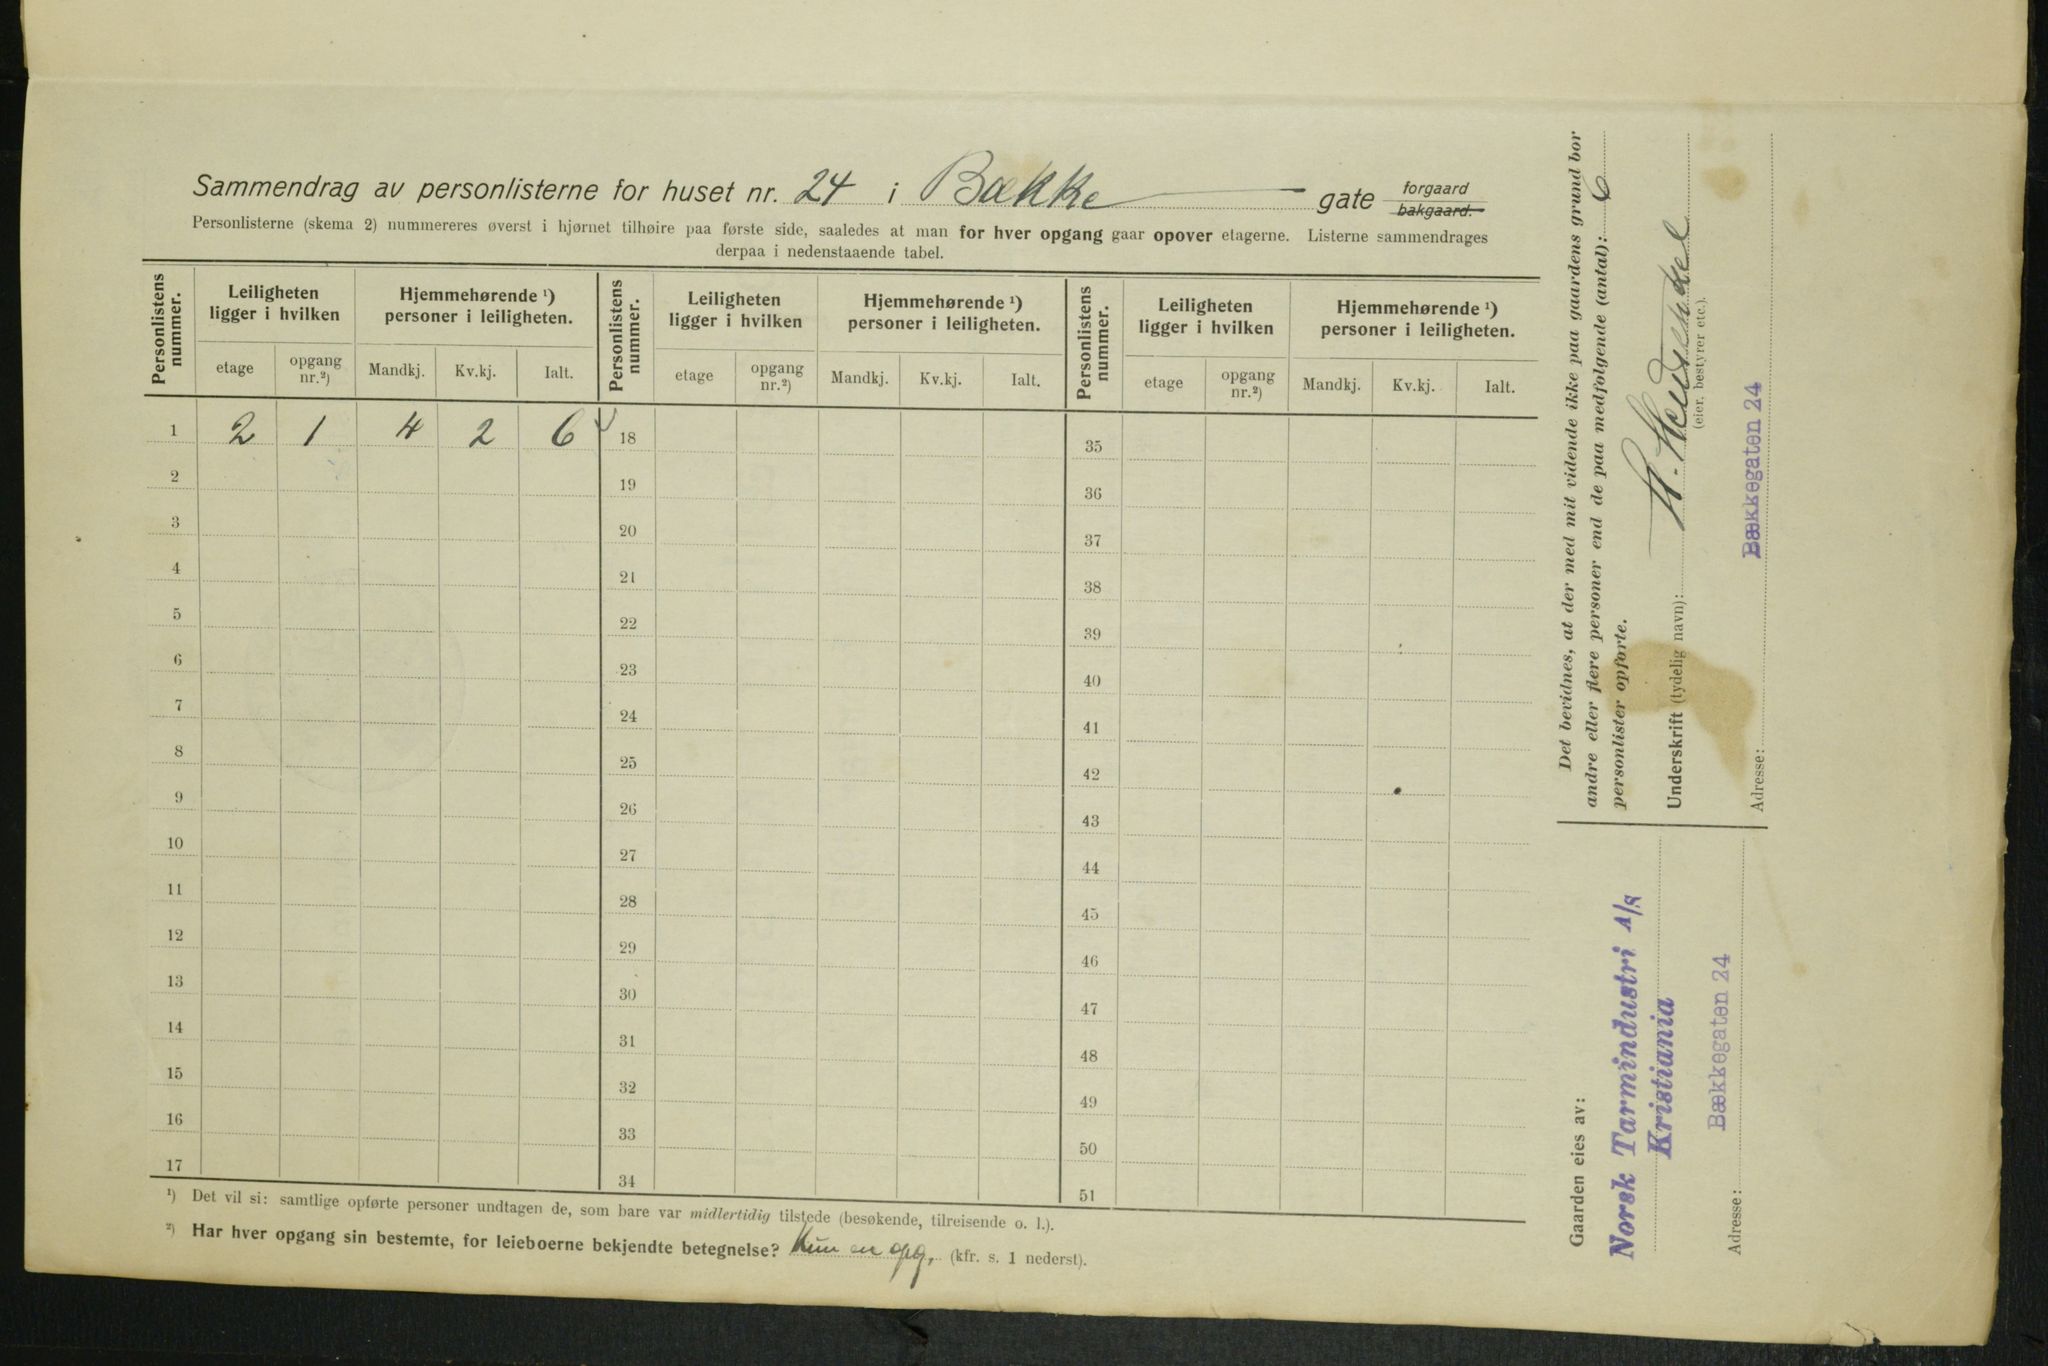 Sammendrag av personlisterne for huset nr. 24 i Bække gate forgaard bakgaard.
Personlisterne (skema 2) nummereres øverst i hjørnet tilhøire paa første side, saaledes at man for hver opgang gaar opover etagerne. Listerne sammendrages
derpaa i nedenstaaende tabel.
Personlistens nummer. Leiligheten ligger i hvilken Hjemmehørende ¹) personer i leiligheten. Personlistens nummer. Leiligheten ligger i hvilken Hjemmehørende ¹) personer i leiligheten. Personlistens nummer. Leiligheten ligger i hvilken Hjemmehørende ¹) personer i leiligheten.
etage opgang nr.²) Mandkj. Kv.kj. Ialt. etage opgang nr.²) Mandkj. Kv.kj. Ialt. etage opgang nr.²) Mandkj. Kv.kj. Ialt.
1 2 1 4 2 6 18 35
2 19 36
3 20 37
4 21 38
5 22 39
6 23 40
7 24 41
8 25 42
9 26 43
10 27 44
11 28 45
12 29 46
13 30 47
14 31 48
15 32 49
16 33 50
17 34 51
¹) Det vil si: samtlige opførte personer undtagen de, som bare var midlertidig tilstede (besøkende, tilreisende o. l.).
²) Har hver opgang sin bestemte, for leieboerne bekjendte betegnelse? Kun en opg. (kfr. s. 1 nederst).
Det bevidnes, at der med mit vidende ikke paa gaardens grund bor
andre eller flere personer end de paa medfølgende (antal): 6
personlister opførte.
Underskrift (tydelig navn):
(eier, bestyrer etc.).
Adresse: Bækkegaten 24
Gaarden eies av:
Norsk Tarmindustri A/S
Kristiania
Bækkegaten 24
Adresse: